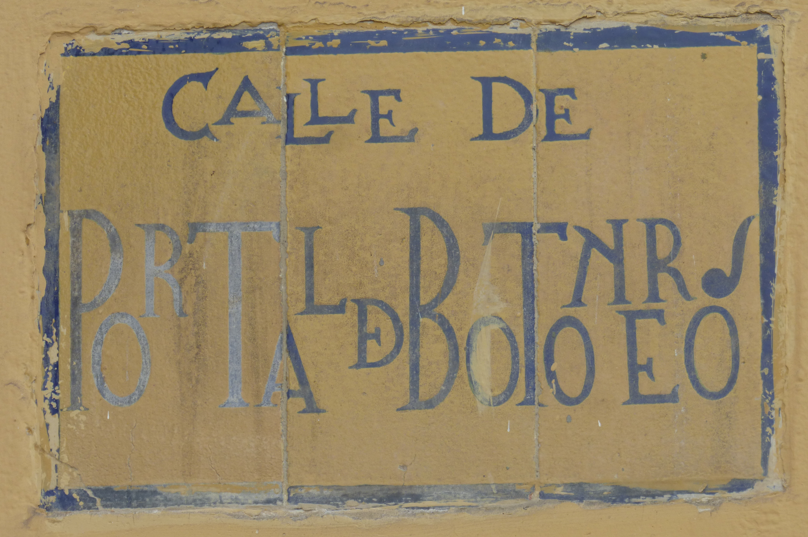 CALLE DE
PORTAL DE BOTONEROS